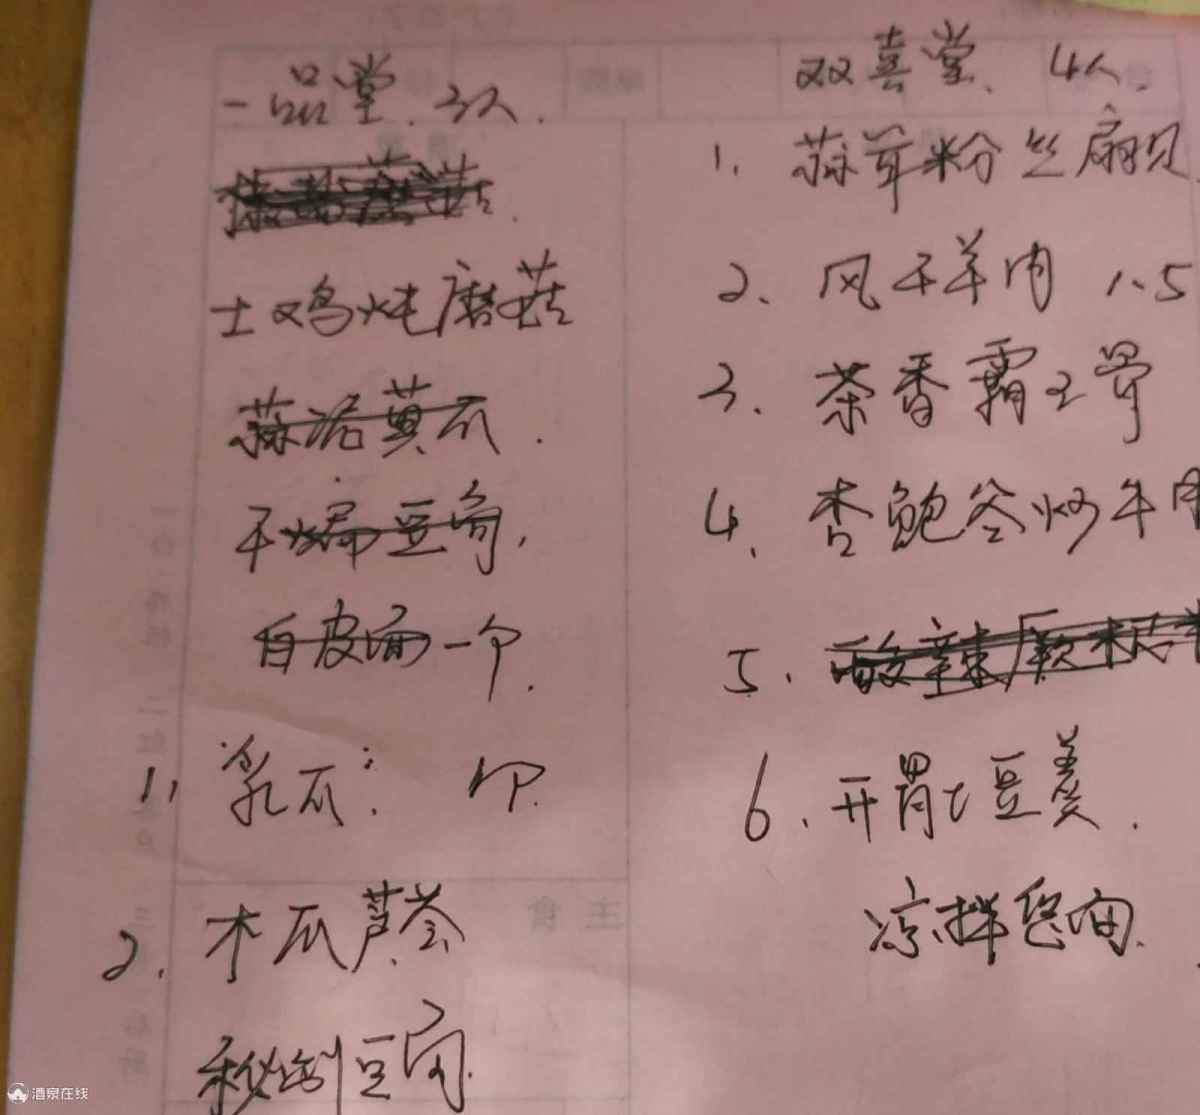 一品堂.3人.
土鸡炖磨菇
蒜泥黄瓜.
干煸豆角,
白皮面一个.
1, 乳瓜: 个.
2. 木瓜芦荟
秘制豆腐.
双喜堂、4人.
1. 蒜茸粉丝扇贝.
2、风干羊肉 1.5
3. 茶香霸王骨
4. 杏鲍菇炒牛肉
5.
6. 开胃土豆羹.
凉拌
主食
酒泉在线